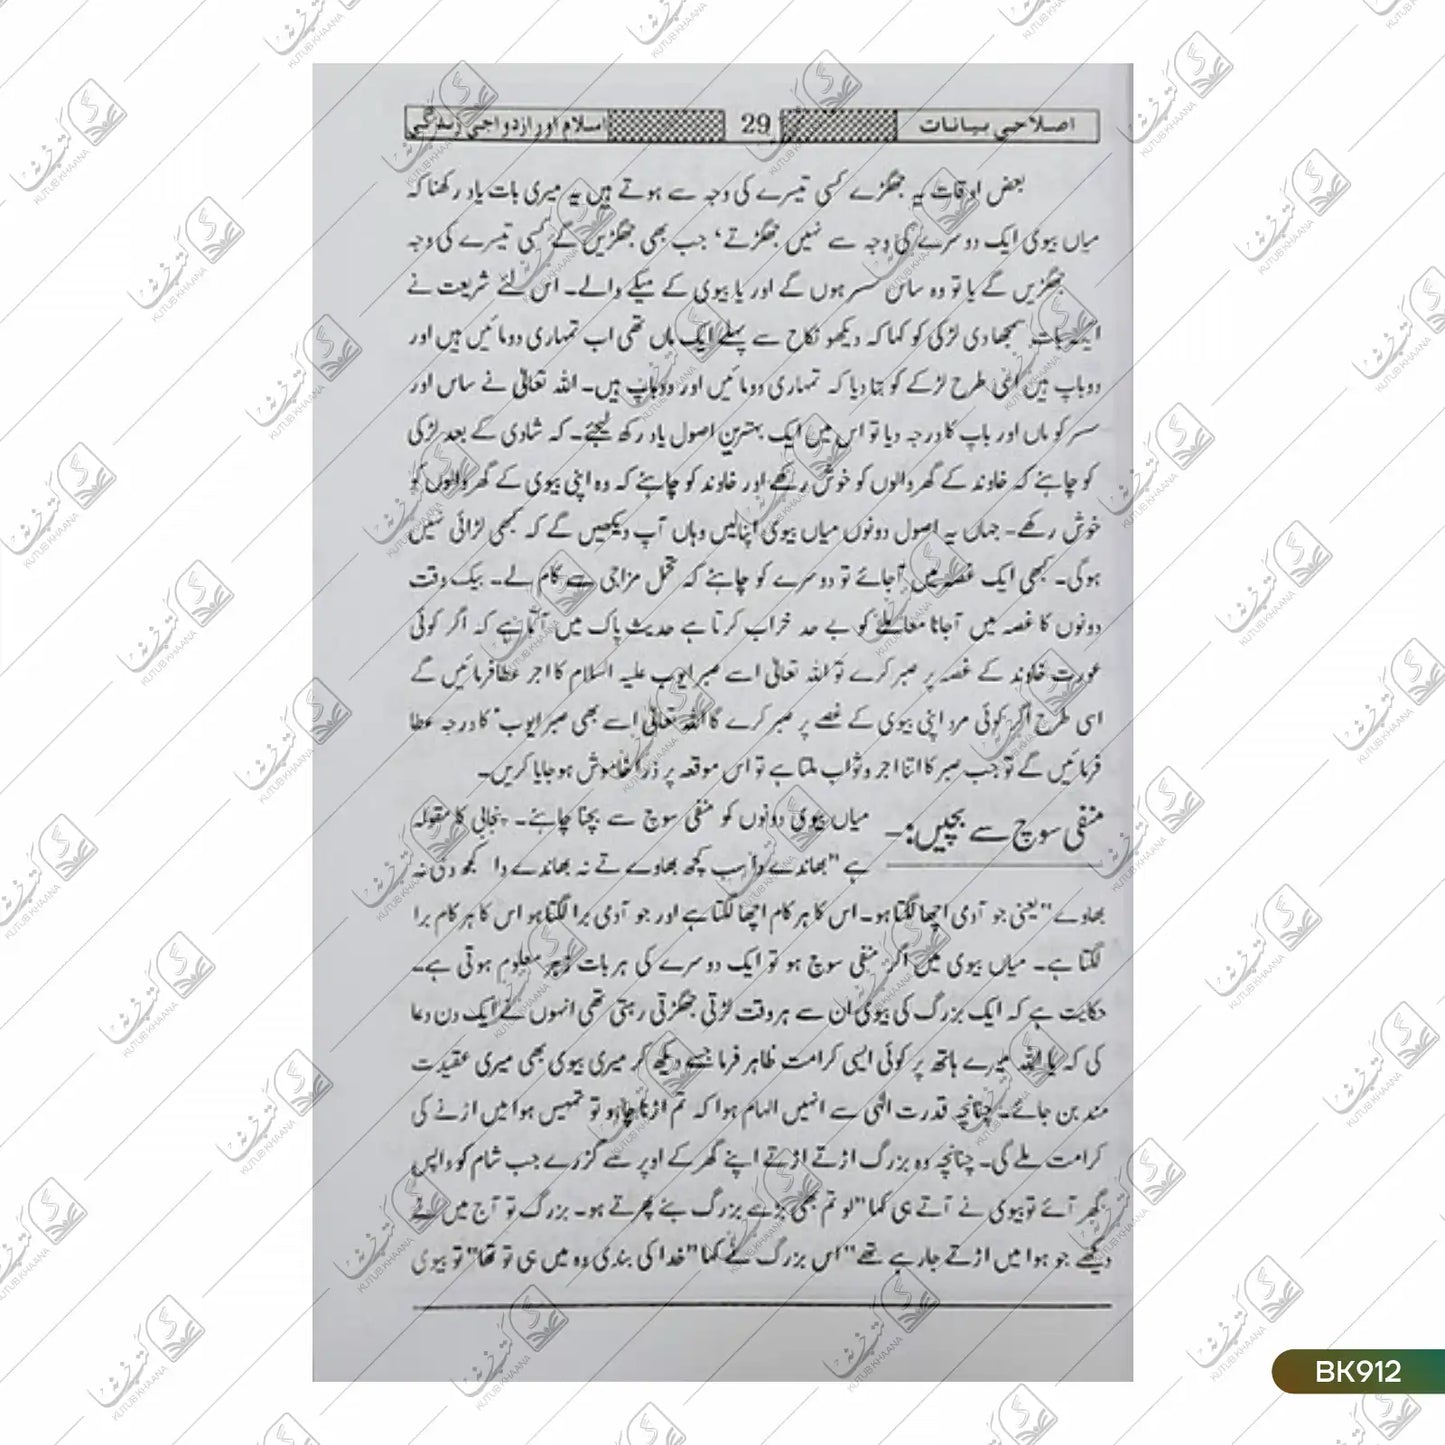 اصلاحی بیانات 29 اسلام اور ازدواجی زندگی
بعض اوقات یہ جھگڑے کسی تیسرے کی وجہ سے ہوتے ہیں یہ میری بات یاد رکھنا کہ
میاں بیوی ایک دوسرے کی وجہ سے نہیں جھگڑتے، جب بھی جھگڑیں گے کسی تیسرے کی وجہ
جھگڑیں گے یا تو وہ ساس سسر ہوں گے اور یا بیوی کے میکے والے۔ اس لئے شریعت نے
ایک بات سمجھا دی لڑکی کو کہا کہ دیکھو نکاح سے پہلے ایک ماں تھی اب تمہاری دو مائیں ہیں اور
دو باپ ہیں اسی طرح لڑکے کو بتا دیا کہ تمہاری دو مائیں اور دو باپ ہیں۔ اللہ تعالٰی نے ساس اور
سسر کو ماں اور باپ کا درجہ دیا تو اس میں ایک بہترین اصول یاد رکھ لیجئے۔ کہ شادی کے بعد لڑکی
کو چاہئے کہ خاوند کے گھر والوں کو خوش رکھے اور خاوند کو چاہئے کہ وہ اپنی بیوی کے گھر والوں کو
خوش رکھے۔ جہاں یہ اصول دونوں میاں بیوی اپنالیں وہاں آپ دیکھیں گے کہ کبھی لڑائی نہیں
ہوگی۔ کبھی ایک غصہ میں آجائے تو دوسرے کو چاہئے کہ تحمل مزاجی سے کام لے۔ بیک وقت
دونوں کا غصہ میں آجانا معاملے کو بے حد خراب کرتا ہے حدیث پاک میں آتا ہے کہ اگر کوئی
عورت خاوند کے غصہ پر صبر کرے تو اللہ تعالٰی اسے صبر ایوب علیہ السلام کا اجر عطا فرمائیں گے
اسی طرح اگر کوئی مرد اپنی بیوی کے غصے پر صبر کرے گا اللہ تعالٰی اسے بھی صبر ایوبؑ کا درجہ عطا
فرمائیں گے تو جب صبر کا اتنا اجر و ثواب ملتا ہے تو اس موقعہ پر ذرا خاموش ہو جایا کریں۔
منفی سوچ سے بچیں:۔ میاں بیوی دونوں کو منفی سوچ سے بچنا چاہئے۔ پنجابی کا مقولہ
ہے "بھاندے دا سب کچھ بھاوے تے نہ بھاندے دا کجھ وی نہ
بھاوے" یعنی جو آدمی اچھا لگتا ہو۔ اس کا ہر کام اچھا لگتا ہے اور جو آدمی برا لگتا ہو اس کا ہر کام برا
لگتا ہے۔ میاں بیوی میں اگر منفی سوچ ہو تو ایک دوسرے کی ہر بات زہر معلوم ہوتی ہے۔
حکایت ہے کہ ایک بزرگ کی بیوی ان سے ہر وقت لڑتی جھگڑتی رہتی تھی انہوں نے ایک دن دعا
کی کہ یا اللہ میرے ہاتھ پر کوئی ایسی کرامت ظاہر فرما جسے دیکھ کر میری بیوی بھی میری عقیدت
مند بن جائے۔ چنانچہ قدرت الٰہی سے انہیں الہام ہوا کہ تم اڑنا چاہو تو تمہیں ہوا میں اڑنے کی
کرامت ملے گی۔ چنانچہ وہ بزرگ اڑتے اڑتے اپنے گھر کے اوپر سے گزرے جب شام کو واپس
گھر آئے تو بیوی نے آتے ہی کہا "لو تم بھی بڑے بزرگ بنے پھرتے ہو۔ بزرگ تو آج میں نے
دیکھے جو ہوا میں اڑتے جا رہے تھے" اس بزرگ نے کہا "خدا کی بندی وہ میں ہی تو تھا" تو بیوی
BK912